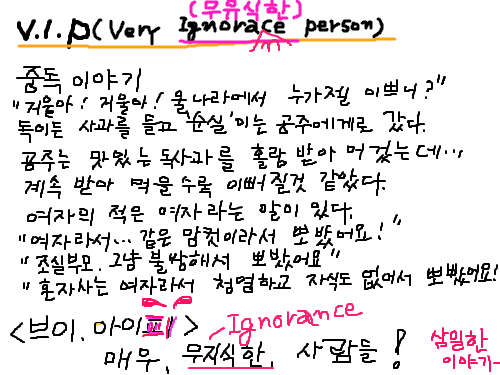 (무유식한)
V.I.P(Very Ignorace person)
중독 이야기
"거울아! 거울아! 물나라에서 누가젤 이쁘니?"
독이든 사과를 들고 '순실'이는 공주에게로 갔다.
공주는 맛있는 독사과를 홀랑 받아 먹었는데...
계속 받아 먹을수록 이뻐질것 같았다.
여자의 적은 여자라는 말이 있다.
"여자라서... 같은 맘컷이라서 뽀봤어요!"
"조실부모. 그냥 불쌍해서 뽀봤어요"
"혼자사는 여자라서 청렴하고 자식도 없어서 뽀봤어요!
<브이.아이피> Ignorance
매우, 무지식한, 사람들!
삼밀한
이야기-